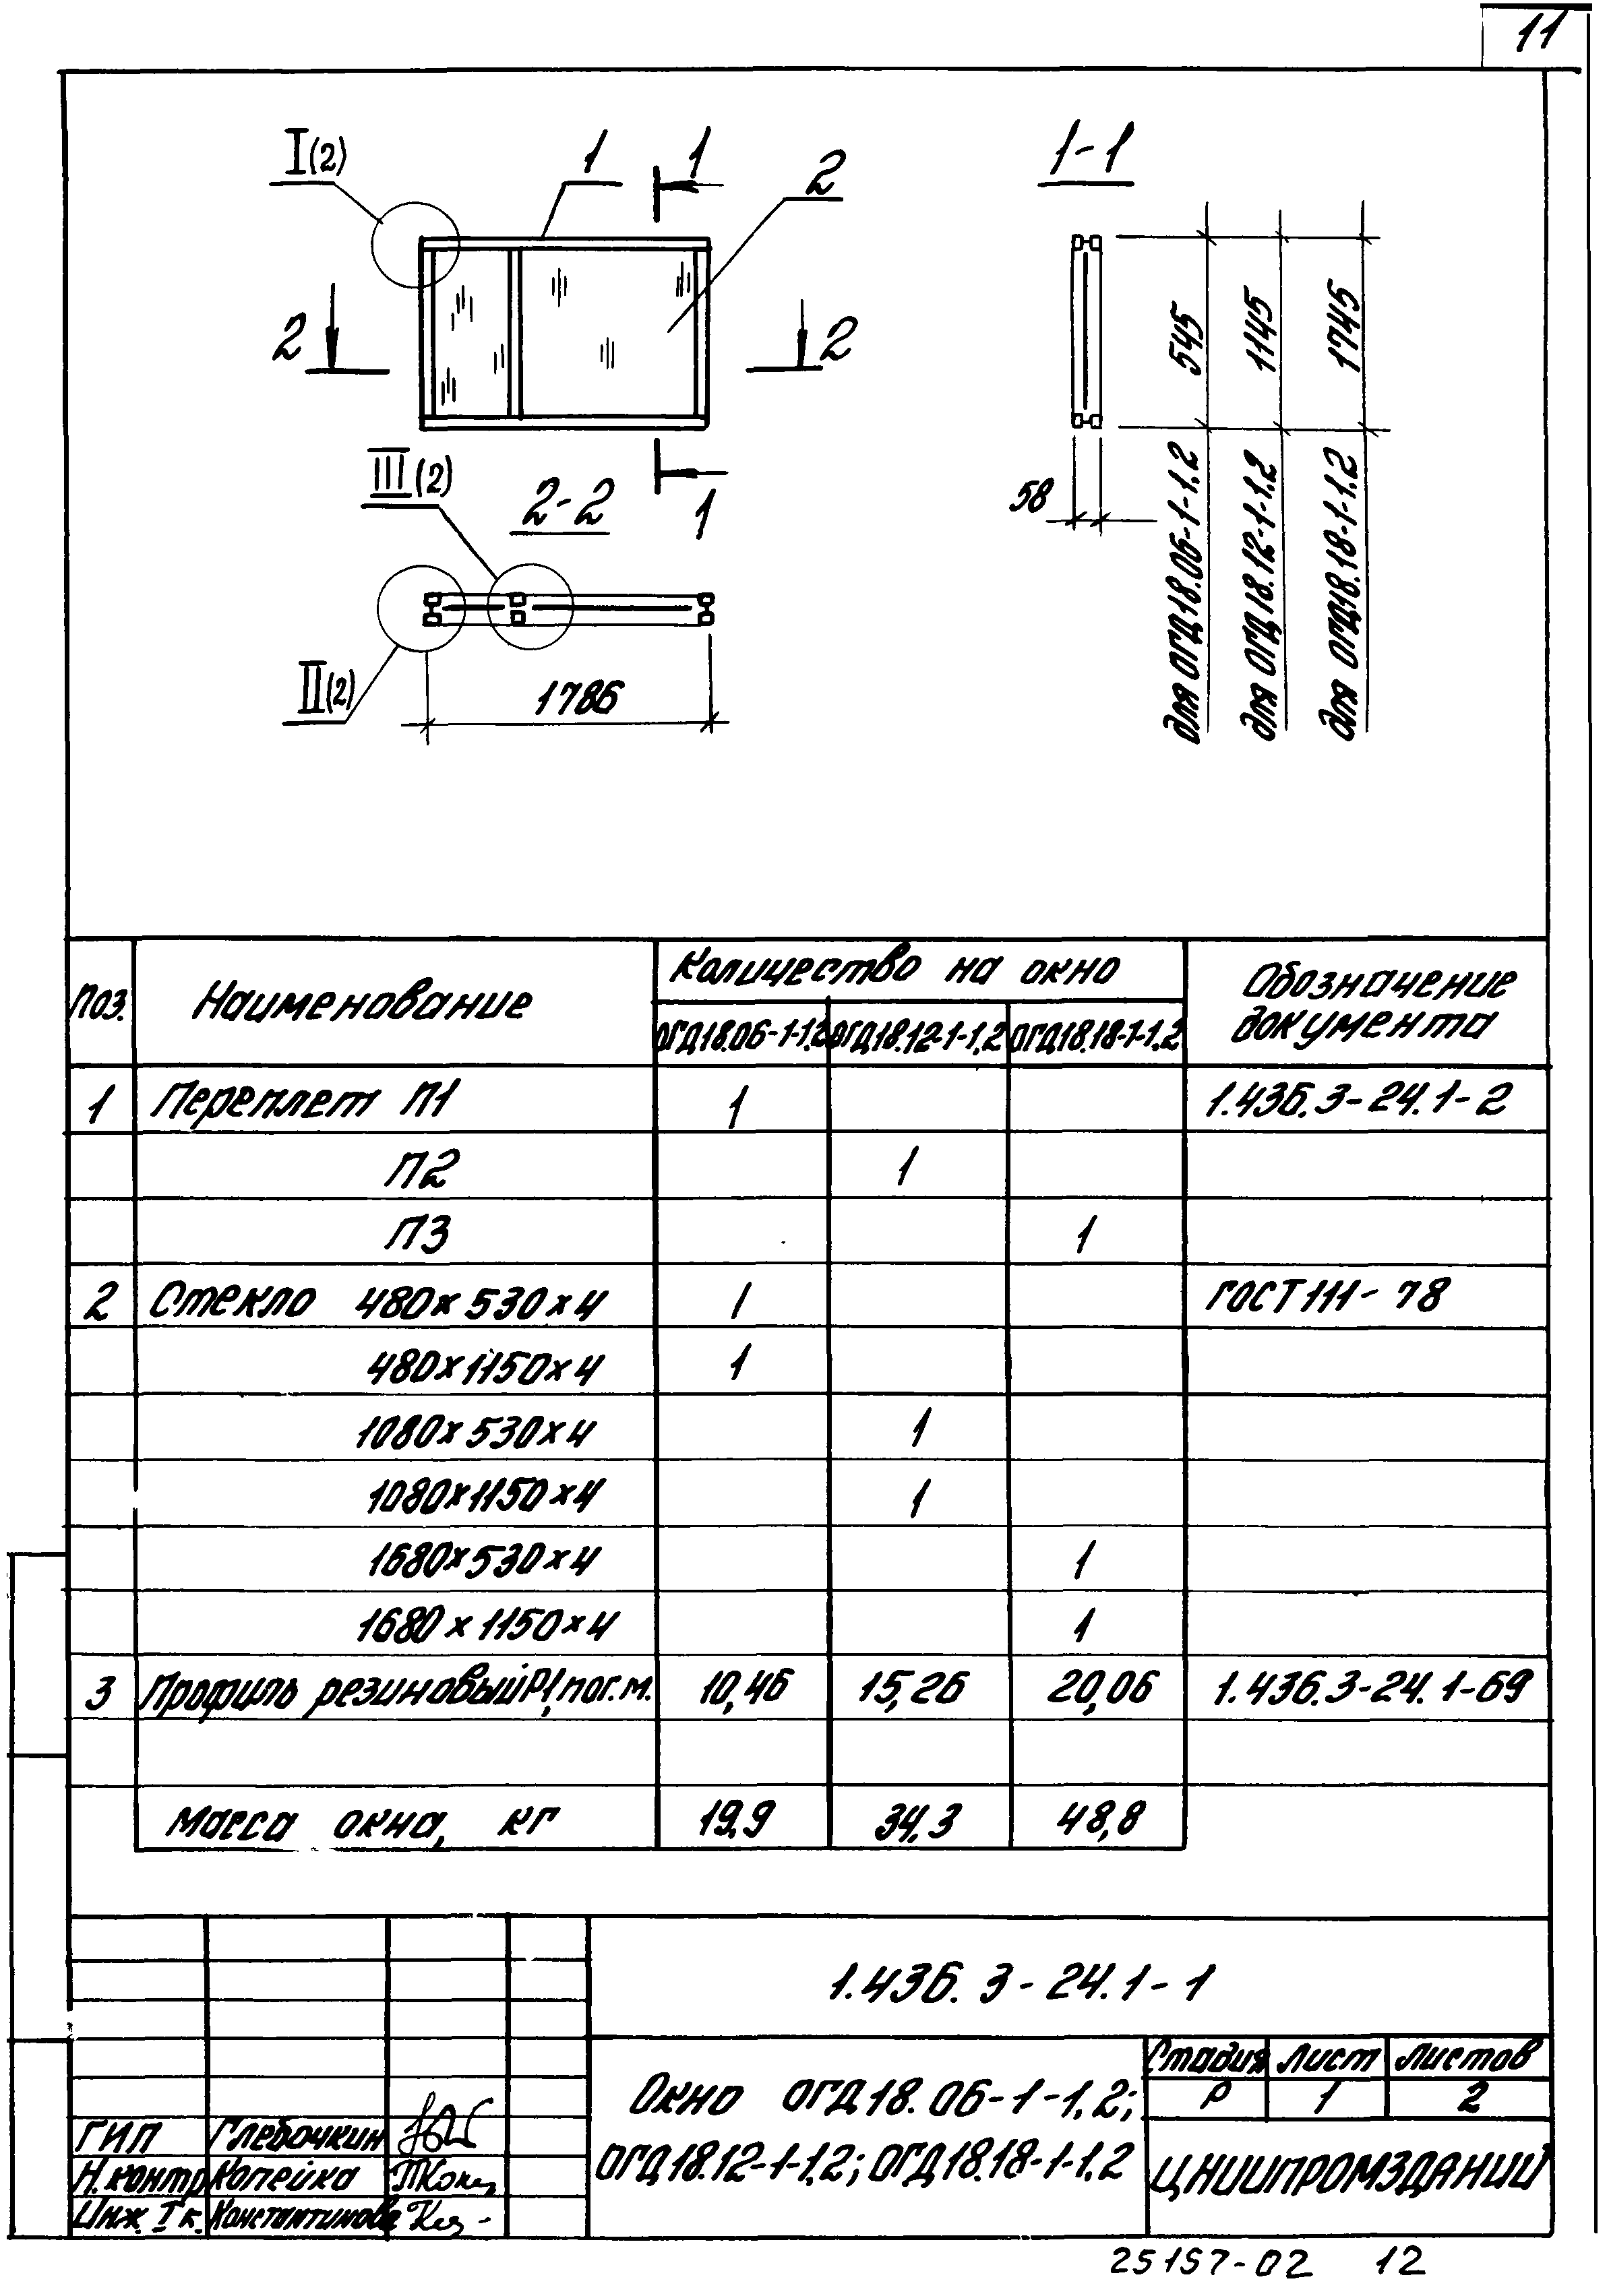 11
I(2)
1
1
2
1-1
2
2
545
1145
1745
III(2)
2-2
1
58
для ОГД18.06-1-1,2
для ОГД18.12-1-1,2
для ОГД18.18-1-1,2
II(2)
1786
Поз. Наименование Количество на окно Обозначение документа
ОГД18.06-1-1,2 ОГД18.12-1-1,2 ОГД18.18-1-1,2
1 Переплет П1 1 1.436.3-24.1-2
П2 1
П3 1
2 Стекло 480×530×4 1 ГОСТ 111-78
480×1150×4 1
1080×530×4 1
1080×1150×4 1
1680×530×4 1
1680×1150×4 1
3 Профиль резиновый Р1, пог.м. 10,46 15,26 20,06 1.436.3-24.1-69
Масса окна, кг 19,9 34,3 48,8
1.436.3-24.1-1
Окно ОГД18.06-1-1,2;
ОГД18.12-1-1,2; ОГД18.18-1-1,2
Стадия Лист Листов
Р 1 2
ЦНИИПРОМЗДАНИЙ
ГИП Глебочкин
Н.контр Копейка
Инж. I к. Константинова
25157-02 12